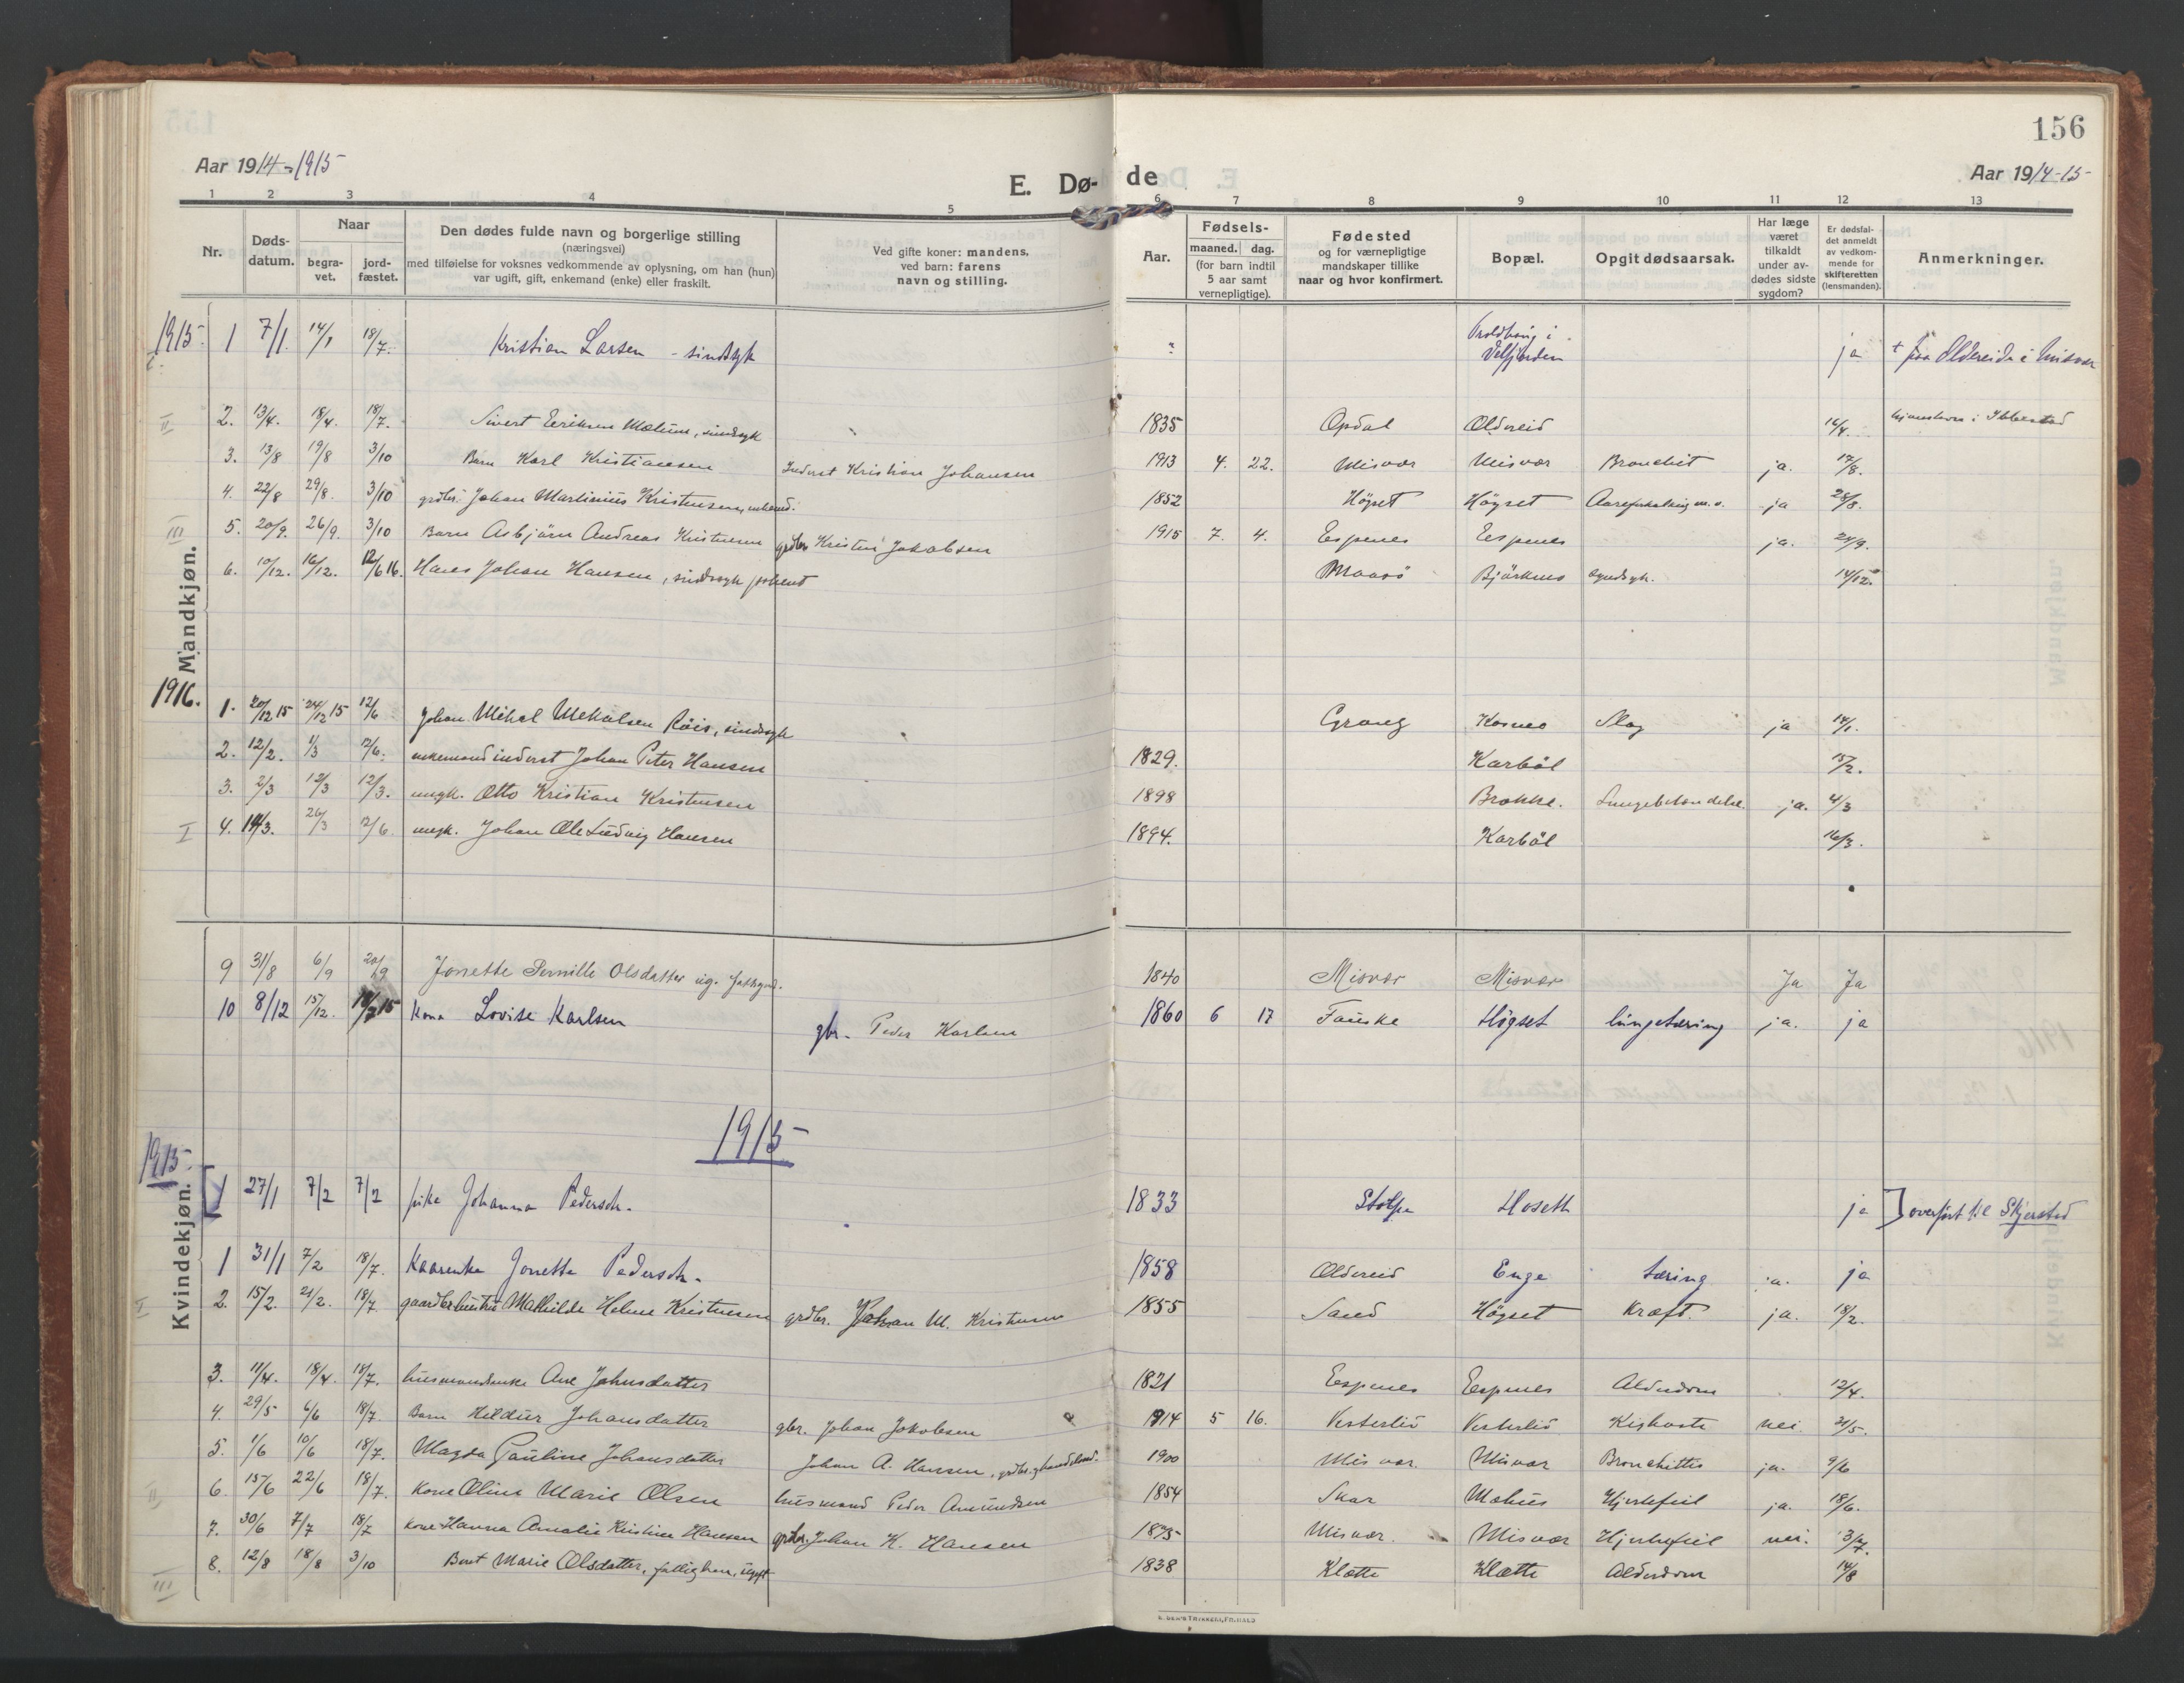 156
Aar 1914-1915
E. Dø- de
Aar 1914-15-
1 2 3 4 5 6 7 8 9 10 11 12 13
Nr.
Døds-datum.
Naar
begra-vet.
jord-fæstet.
Den dødes fulde navn og borgerlige stilling
(næringsvei)
med tilføielse for voksnes vedkommende av oplysning, om han (hun)
var ugift, gift, enkemand (enke) eller fraskilt.
Ved gifte koner: mandens,
ved barn: farens
navn og stilling.
Aar.
Fødsels-
maaned. dag.
(for barn indtil
5 aar samt
vernepligtige).
Fødested
og for værnepligtige
mandskaper tillike
naar og hvor konfirmert.
Bopæl.
Opgit dødsaarsak.
Har læge
været
tilkaldt
under av-
dødes sidste
sygdom?
Er dødsfal-
det anmeldt
av vedkom-
mende for
skifteretten
(lensmanden).
Anmerkninger.
Mandkjøn.
1915. 1 7/1. 14/1 18/7. Kristian Larsen - sindssyk Velfjorden ja
II 2. 13/4. 18/4. 18/7. Sivert Eriksen Mælum, sindssyk 1835 Opdal Oldereid 16/4.
3. 13/8 19/8 3/10 Barn Karl Kristiansen Inderst Kristian Johansen 1913 4. 22. Misvær Misvær Bronchit ja. 17/8.
4. 22/8 29/8. 3/10 grdbr. Johan Martinius Kristensen, enkemd. 1852 Høgset Høgset Aareforkalkning m.v. ja 28/8.
III 5. 20/9. 26/9. 3/10 Barn Asbjørn Andreas Kristensen grdbr. Kristen Jakobsen 1915 7. 4. Espenes Espenes ja. 24/9.
6. 10/12. 16/12. 12/6 16. Hans Johan Hansen, sindssyk patient Maasø Bjørknes syndsyk. 14/12.
1916. 1. 20/12 15 24/12 15 12/6 Johan Mikal Mekalsen Røis, sindssyk Grong Kosmo Slag ja 14/1.
2. 12/2. 1/3 12/6. enkemand inderst Johan Peter Hansen 1829. Karbøl 15/2.
3. 2/3 12/3 12/3. ungk. Otto Kristian Kristensen 1898 Brekke. Lungebetændelse ja. 4/3
I 4. 14/3. 26/3 12/6. ungk. Johan Ole Ludvig Hansen 1894. Karbøl 16/3.
9 31/8 6/9 20/9 Jonette Pernille Olsdatter ug. fattigund. 1840 Misvær Misvær Ja Ja
10 8/12 15/12. 18/7 15 Kone Lovise Karlsen gbr. Peder Karlsen 1860 6 17 Fauske Høgset lungetæring ja. ja
1915
Kvindekjøn.
1915. 1 27/1 7/2 7/2 pike Johanna Pedersdtr. 1833 Stolpe Hoseth ja overført til Skjerstad
1 31/1 7/2 18/7. Kaarenke Jonette Pedersdtr. 1858 Oldereid Enge tæring ja. ja
I 2. 15/2. 21/2. 18/7. gaardbrhustru Mathilde Helene Kristensen grdbr. Johan M. Kristensen 1855 Sand Høgset Kræft. ja. 18/2.
3. 11/4. 18/4. 18/7. husmandsenke Ane Johnsdatter 1821 Espenes Espenes Alderdom 12/4.
4. 29/5 6/6 18/7. Barn Hildur Johansdatter gbr. Johan Jakobsen 1914 5 16. Vesterlid Vesterlid Kighoste nei. 31/5.
5. 1/6 10/6 18/7. Magda Pauline Johansdatter Johan A. Hansen, grdbr. og handelsmd. 1900 Misvær. Misvær Bronchittis ja. 9/6
II 6. 15/6 22/6 18/7. Kone Oline Marie Olsen husmand Peder Amundsen 1854 Skar Mohus Hjertefeil ja. 18/6.
7. 30/6 7/7 18/7 Kone Hanna Amalie Kristine Hansen grdbr. Johan K. Hansen 1875 Misvær. Misvær Hjertefeil nei. 3/7.
III 8. 12/8 18/8 3/10 Berit Marie Olsdatter, fattighem, ugift 1838 Klætte Klætte Alderdom 14/8